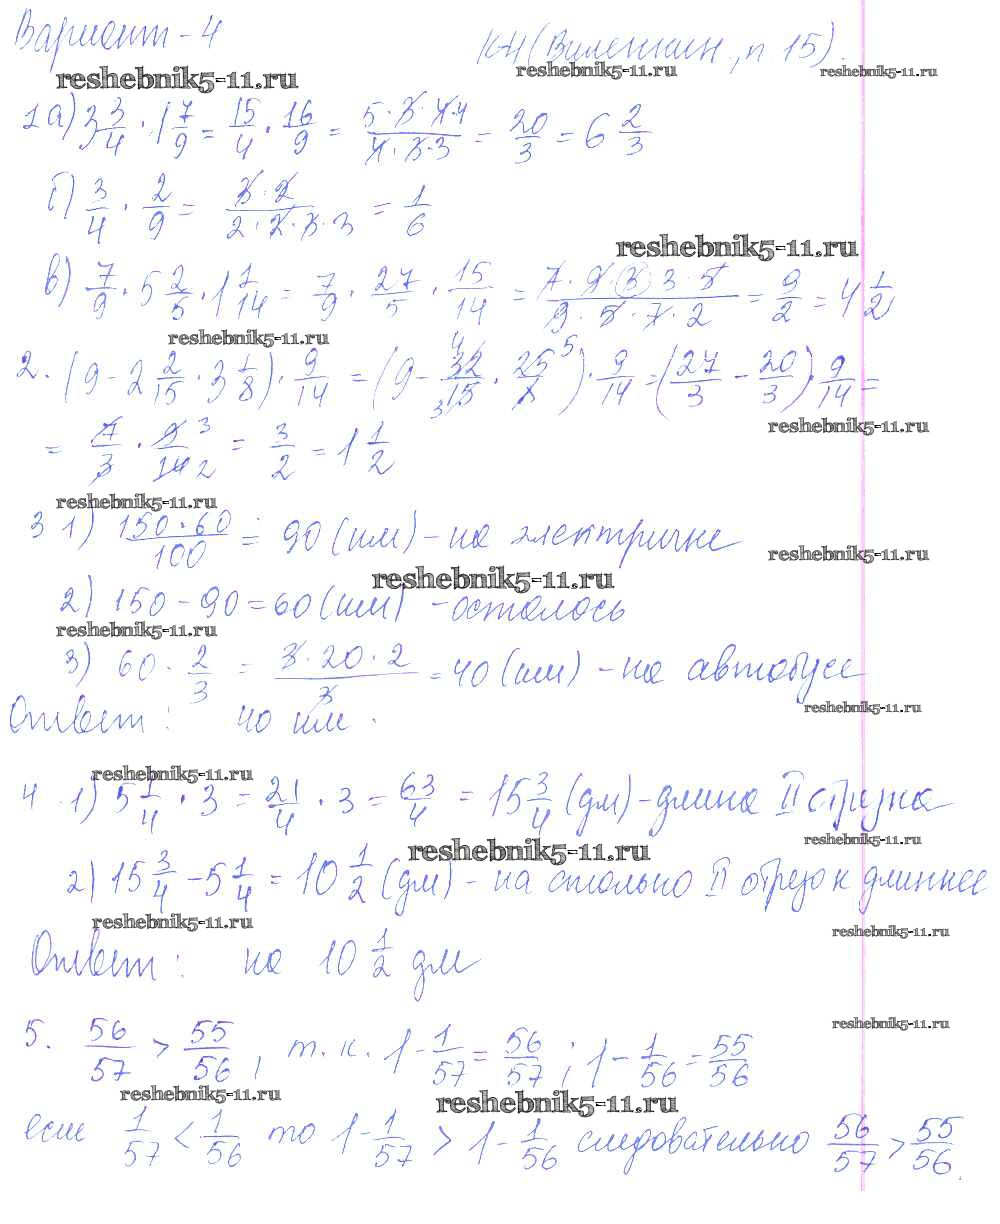 Вариант - 4
К-4 (Виленкин, п. 15).
reshebnik5-11.ru reshebnik5-11.ru reshebnik5-11.ru
1 а) 3 3/4 · 1 7/9 = 15/4 · 16/9 = (5·3·4·4)/(4·3·3) = 20/3 = 6 2/3
б) 3/4 · 2/9 = (3·2)/(2·2·3·3) = 1/6
reshebnik5-11.ru
в) 7/9 · 5 2/5 · 1 1/14 = 7/9 · 27/5 · 15/14 = (7·9·3·3·5)/(9·5·7·2) = 9/2 = 4 1/2
reshebnik5-11.ru
2. (9 - 2 2/15 · 3 1/8) · 9/14 = (9 - 32/15 · 25/8) · 9/14 = (27/3 - 20/3) · 9/14 =
reshebnik5-11.ru
= 7/3 · 9/14 = 3/2 = 1 1/2
reshebnik5-11.ru
3 1) (150·60)/100 = 90 (км) - на электричке
reshebnik5-11.ru
reshebnik5-11.ru
2) 150 - 90 = 60 (км) - осталось
reshebnik5-11.ru
3) 60 · 2/3 = (3·20·2)/3 = 40 (км) - на автобусе
Ответ: 40 км.
reshebnik5-11.ru
reshebnik5-11.ru
4 1) 5 1/4 · 3 = 21/4 · 3 = 63/4 = 15 3/4 (дм) - длина II отрезка
reshebnik5-11.ru
reshebnik5-11.ru
2) 15 3/4 - 5 1/4 = 10 1/2 (дм) - на столько II отрезок длиннее
reshebnik5-11.ru
reshebnik5-11.ru
Ответ: на 10 1/2 дм
reshebnik5-11.ru
5. 56/57 > 55/56, т.к. 1 - 1/57 = 56/57; 1 - 1/56 = 55/56
reshebnik5-11.ru reshebnik5-11.ru
если 1/57 < 1/56 то 1 - 1/57 > 1 - 1/56 следовательно 56/57 > 55/56.